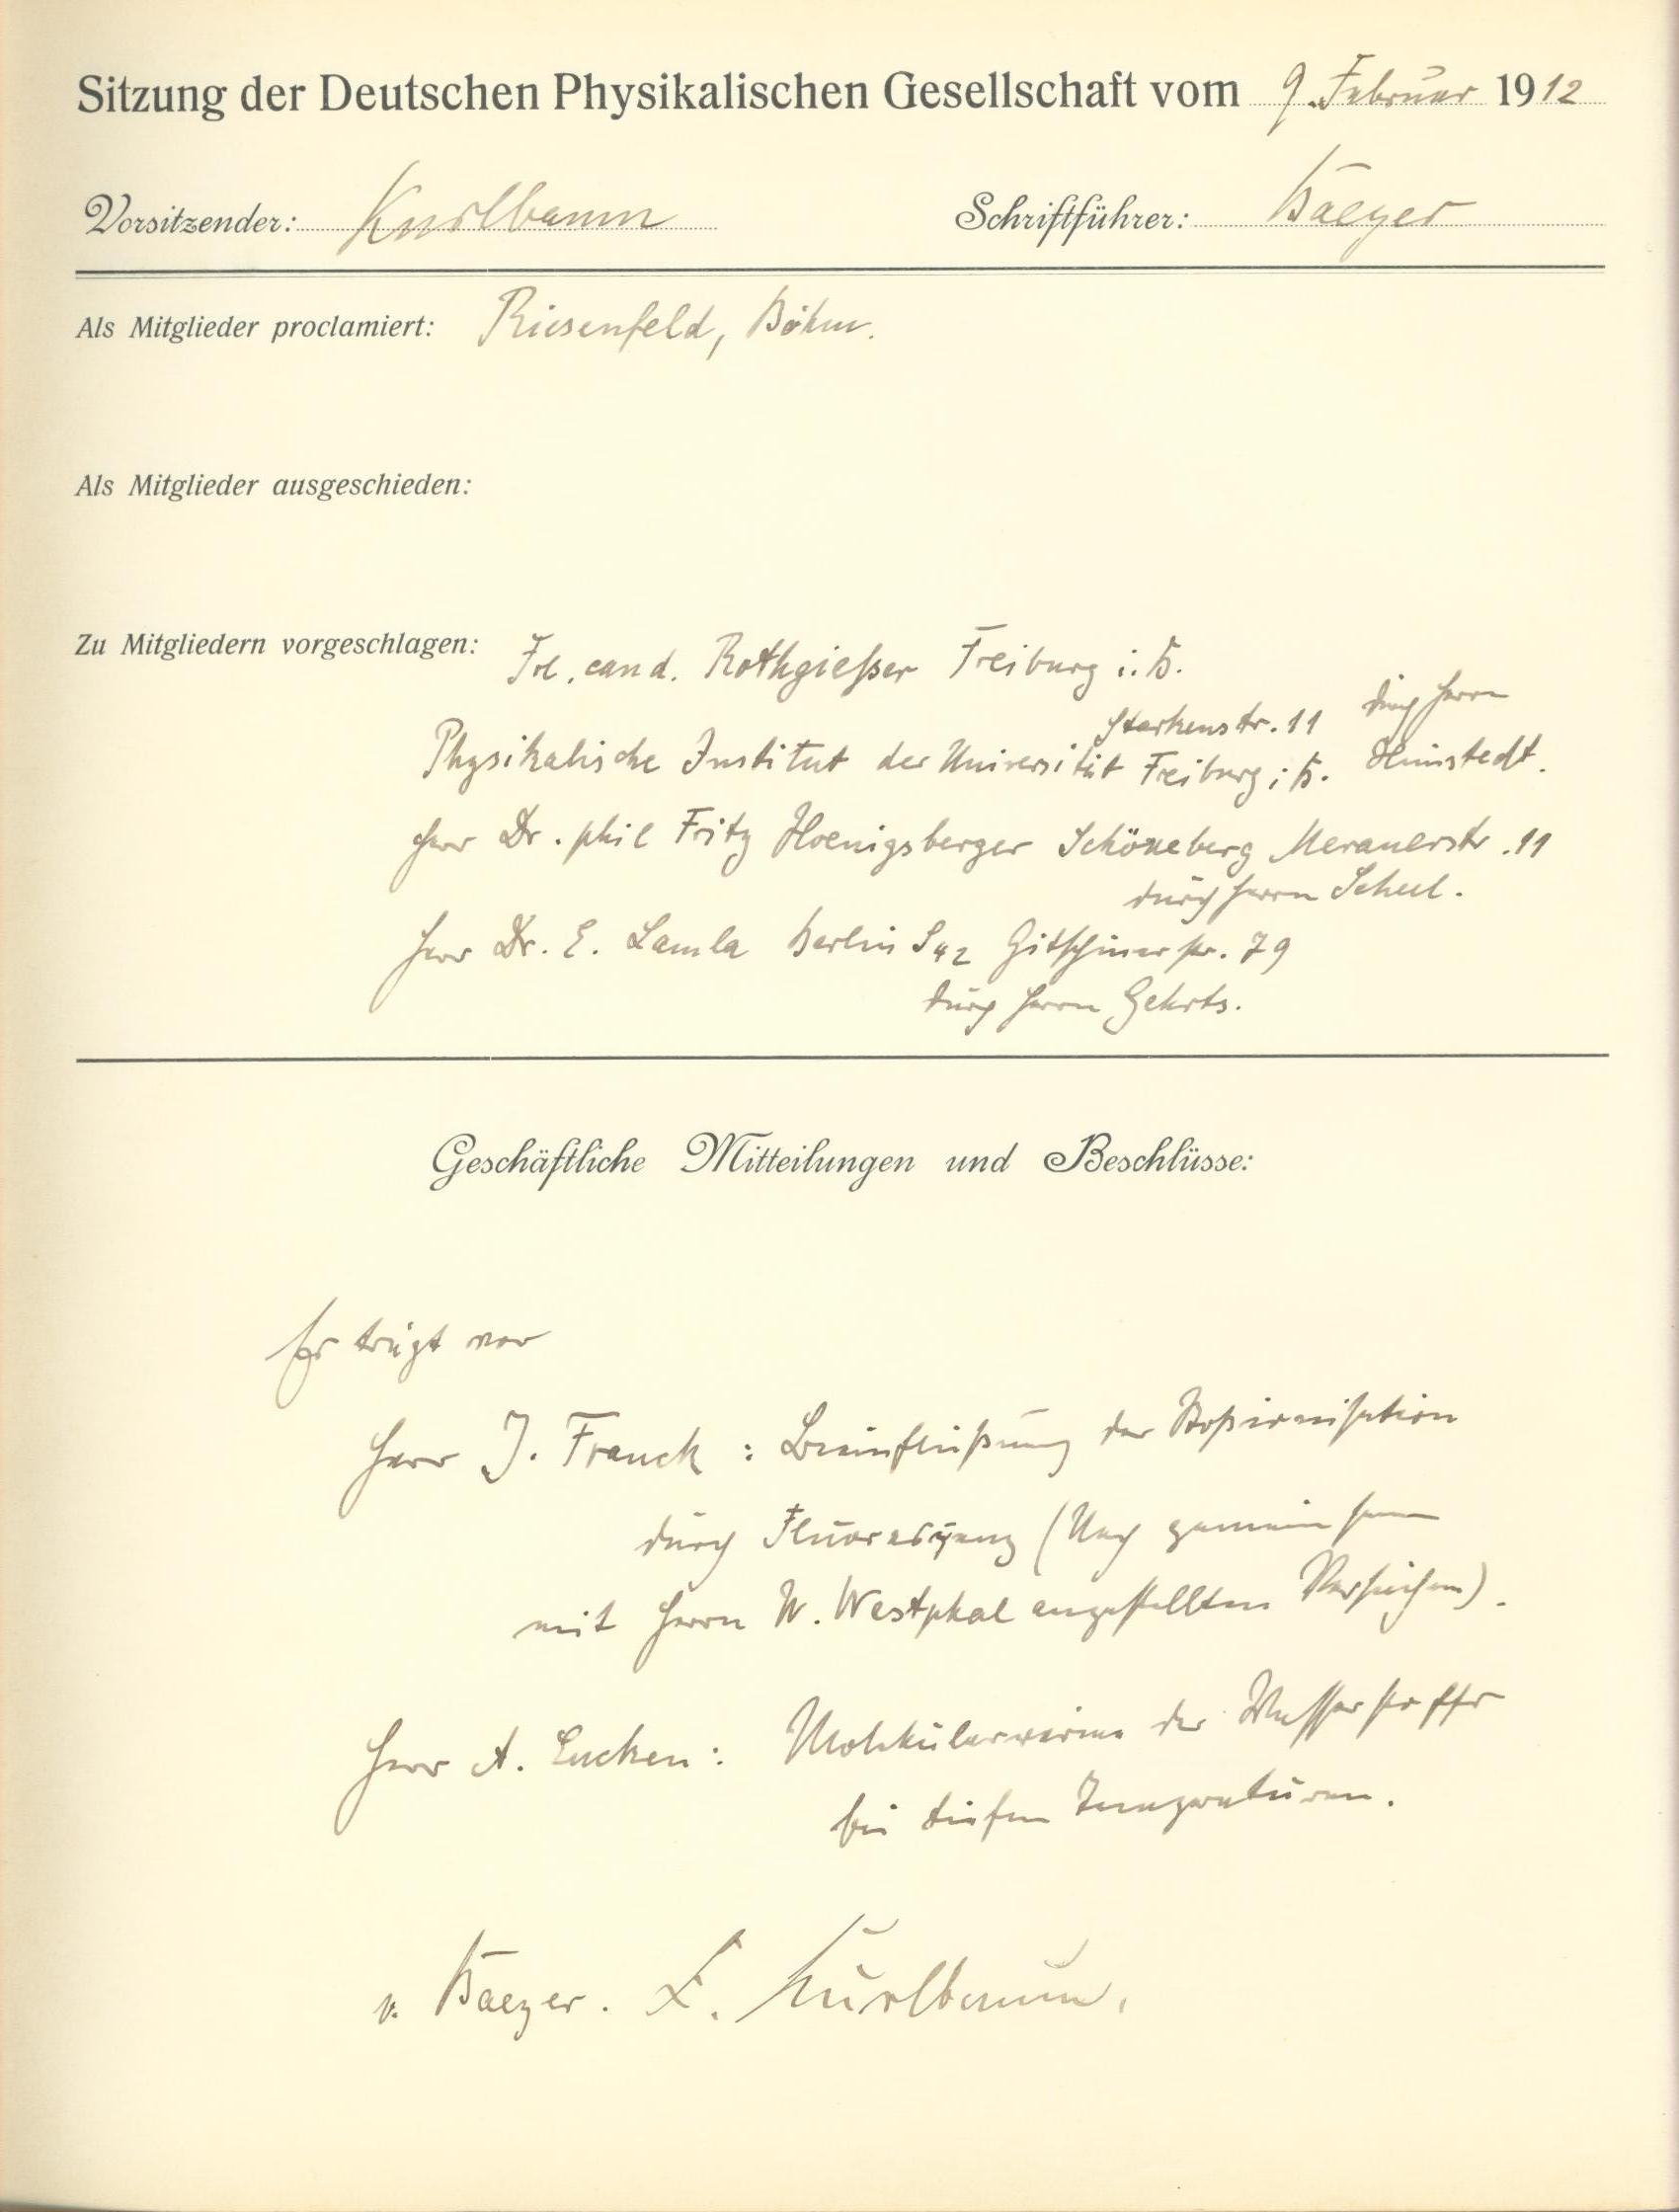 Sitzung der Deutschen Physikalischen Gesellschaft vom 9. Februar 1912
Vorsitzender: Kurlbaum Schriftführer: Baeyer
Als Mitglieder proclamiert: Riesenfeld, Böhm.
Als Mitglieder ausgeschieden:
Zu Mitgliedern vorgeschlagen: Frl. cand. Rothgießer Freiburg i. B.
Starkenstr. 11 durch Herrn
Physikalische Institut der Universität Freiburg i B. Himstedt.
Herr Dr. phil Fritz Hoenigsberger Schöneberg Meranerstr. 11
durch Herrn Scheel.
Herr Dr. E. Lamla Berlin S 42 Gitschinerstr. 79
durch Herrn Gehrts.
Geschäftliche Mitteilungen und Beschlüsse:
Es trägt vor
Herr J. Franck: Beeinflußung der Stoßionisation
durch Fluoreszenz (Nach gemeinsam
mit Herrn W. Westphal angestellten Versuchen).
Herr A. Eucken: Molekularwärme des Wasserstoffs
bei tiefen Temperaturen.
v. Baeyer. F. Kurlbaum.